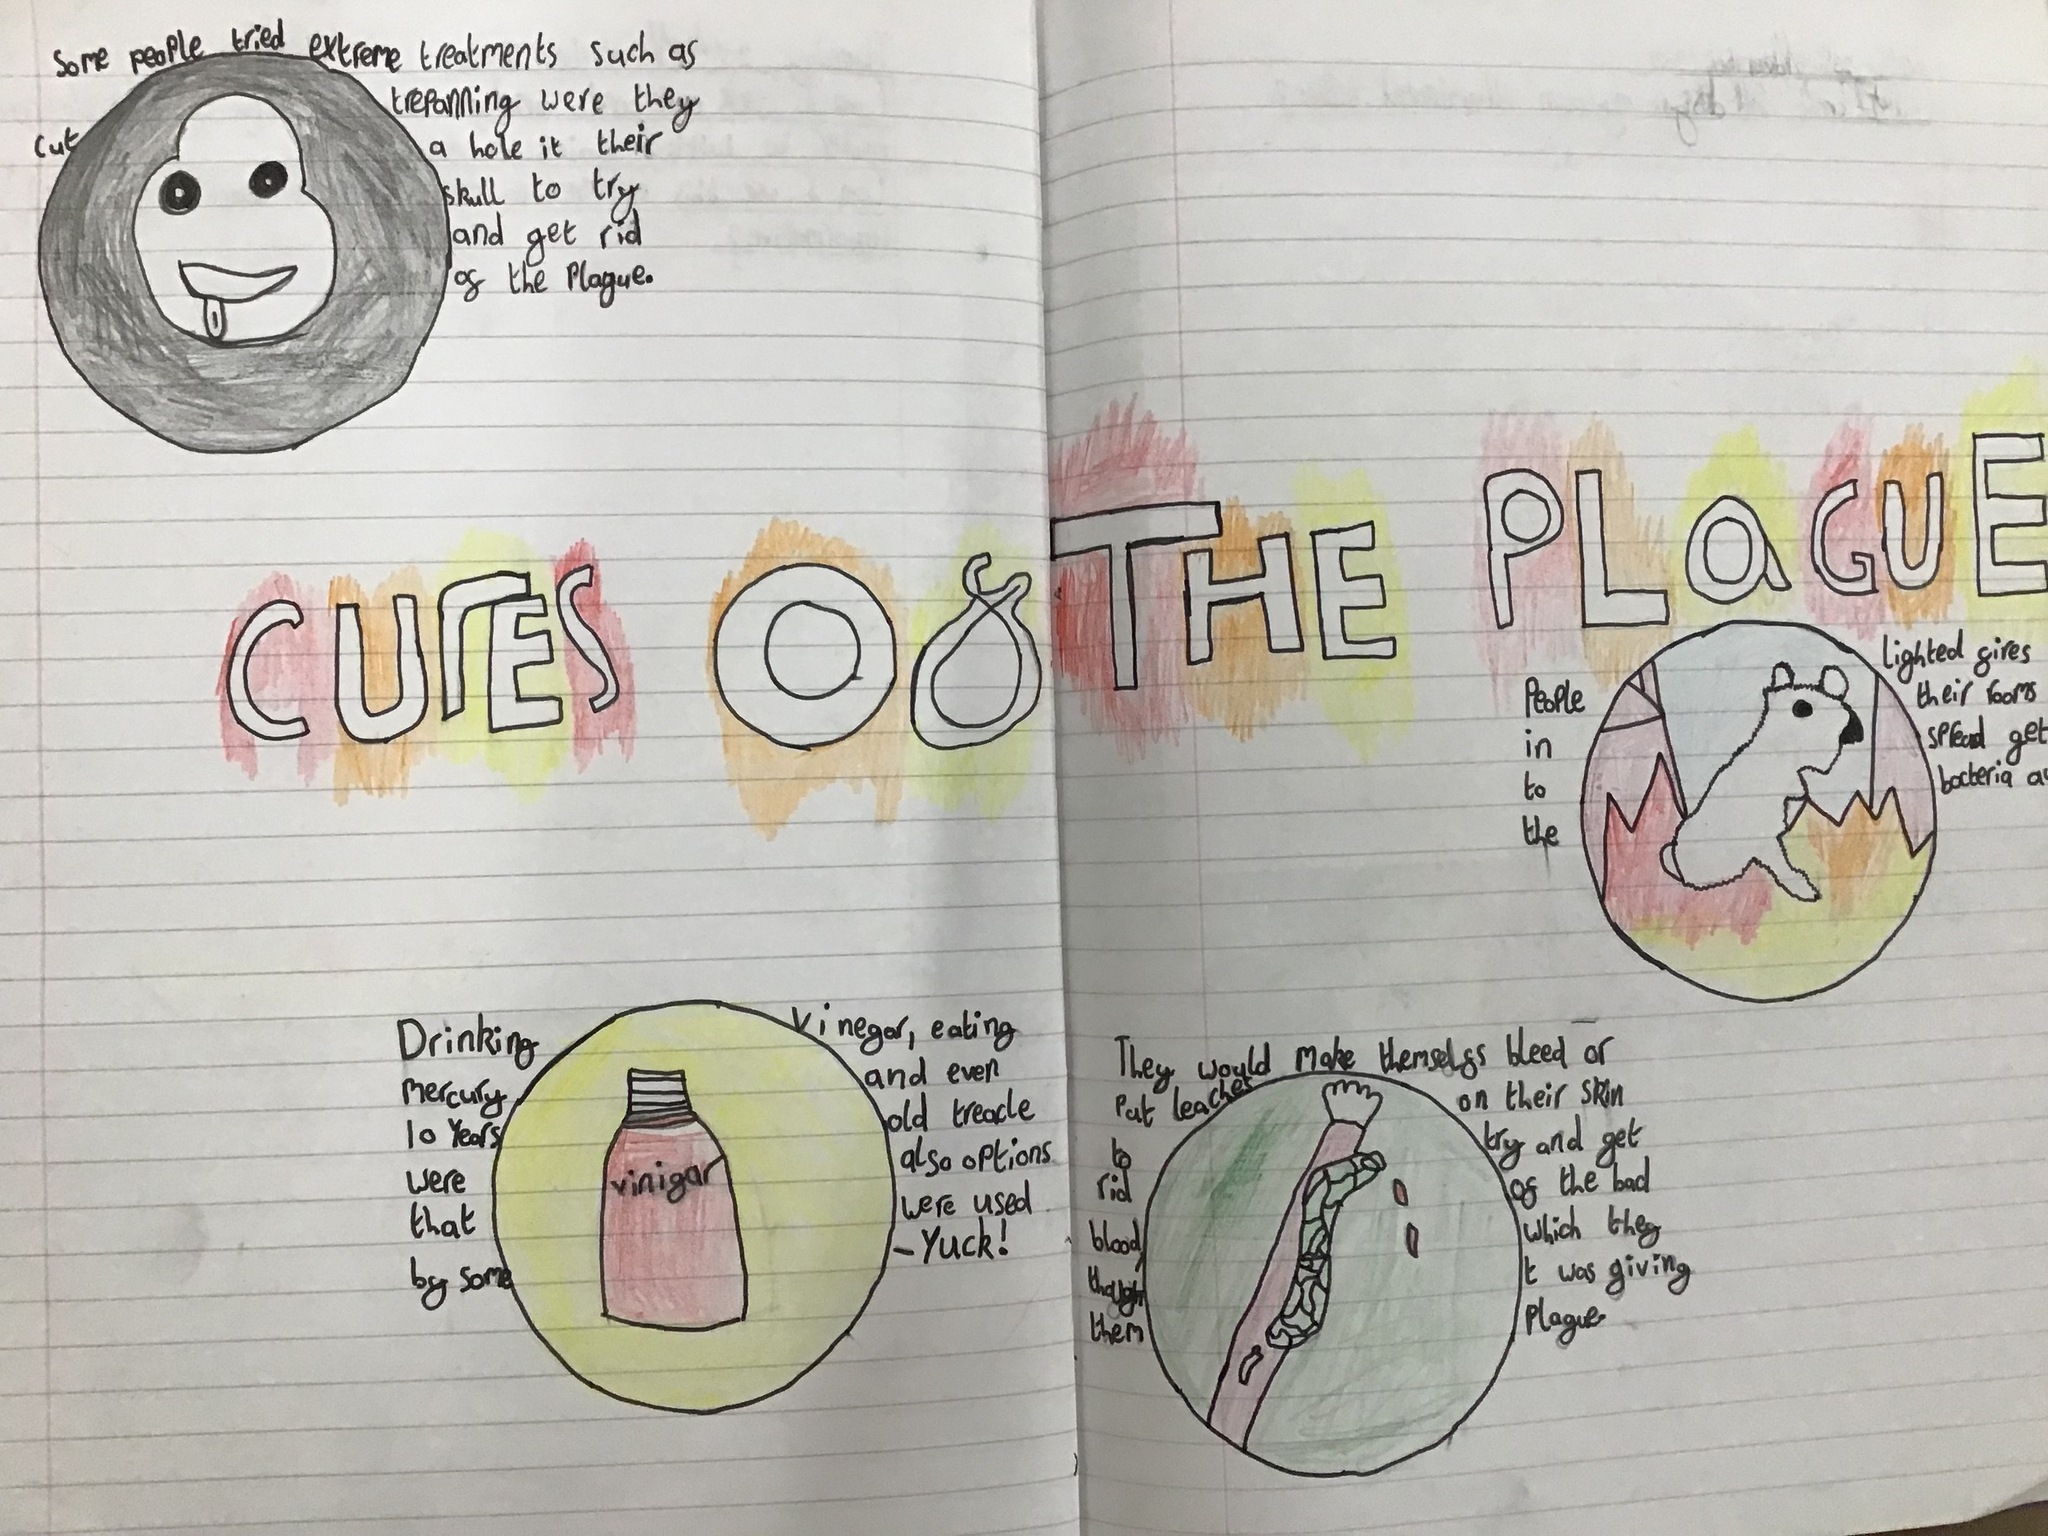 Some people tried extreme treatments such as
trepanning were they
cut a hole it their
skull to try
and get rid
of the Plague.
CURES OF THE PLAGUE
People lighted fires
in their rooms
to spread get
the bacteria
Drinking Vinegar, eating
mercury and even
10 Years old treacle
were also options
that were used
by some - Yuck!
vinigar
They would make themselfs bleed or
Put leaches on their skin
to try and get
rid of the bad
blood which they
thought was giving
them Plague